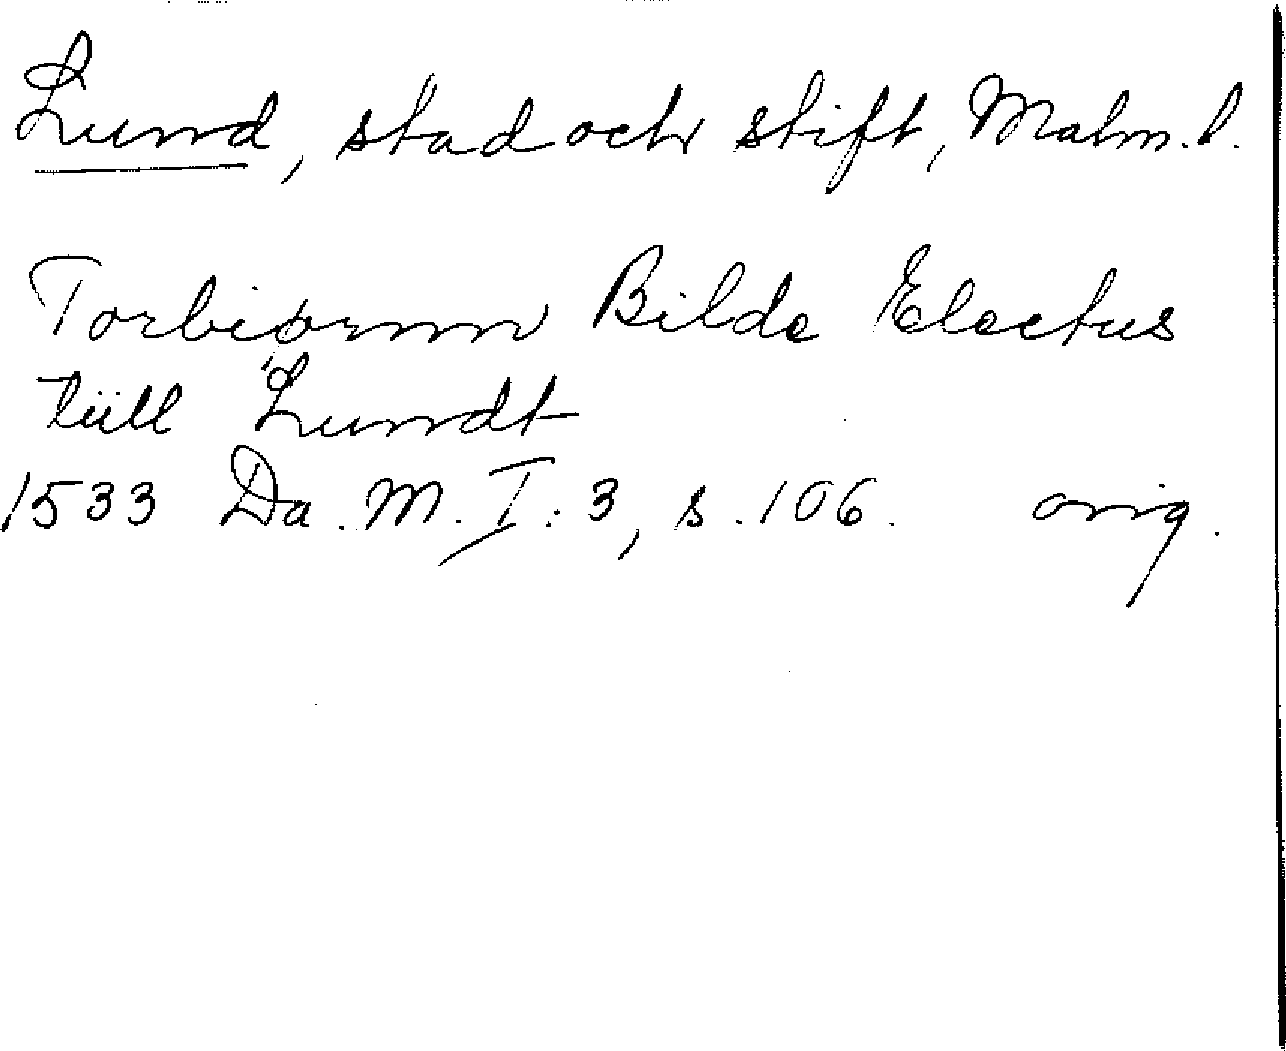 Lund, stad och stift, Malm. l.
Torbiørnn Bilde Electus
tiill Lundt
1533 Da. M. I: 3, s. 106. orig.